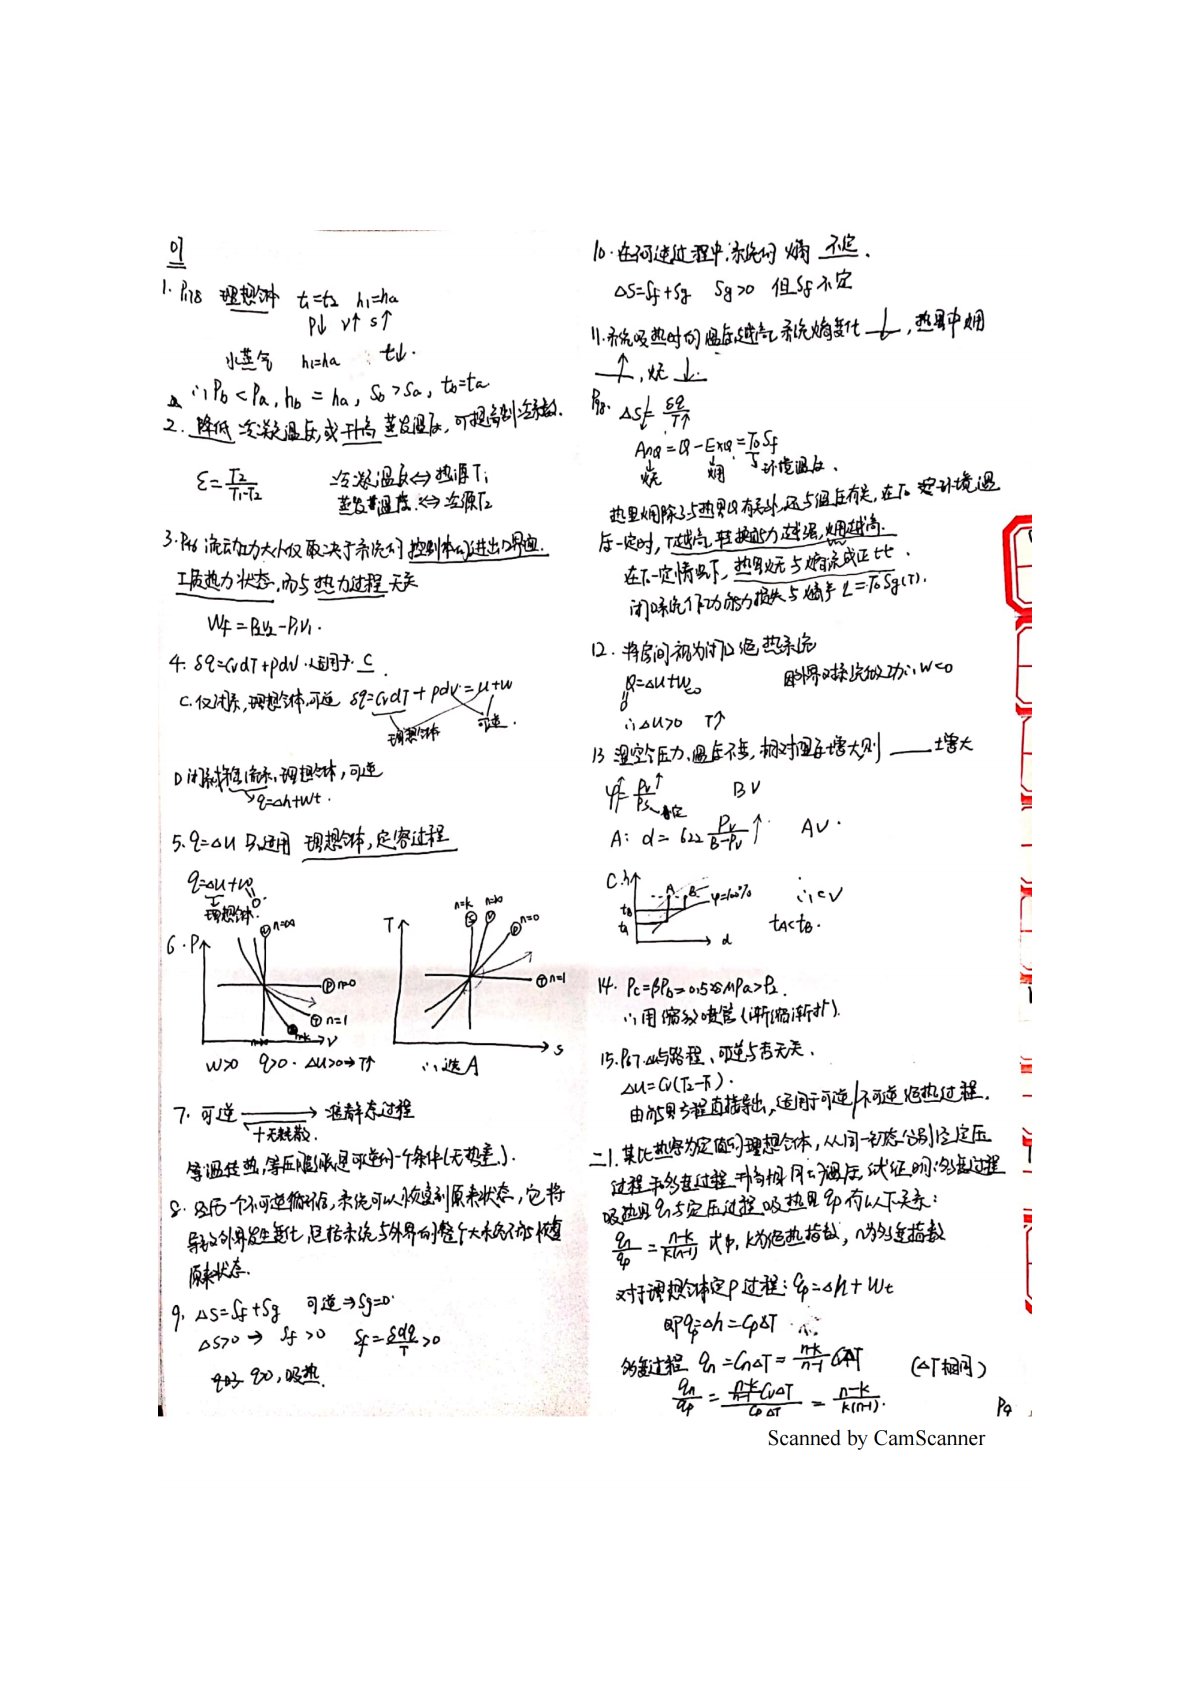 07
1. P178 理想气体 t₁=t₂ h₁=h₂
P↓ v↑ s↑
水蒸气 h₁=h₂ t↓.
∴ Pb < Pa, hb = ha, Sb > Sa, tb=ta
2. 降低 冷凝温度,或 升高 蒸发温度,可提高制冷系数.
ε = T₂/(T₁-T₂) 冷凝温度⇔热源T₁
蒸发温度⇔冷源T₂
3. P46 流动功大小仅取决于系统的 控制体的进出口界面
工质热力状态,而与 热力过程 无关
Wf = P₂V₂-P₁V₁.
4. δq=CvdT+pdv 适用于 C .
C. 仅闭系,理想气体,可逆 δq=CvdT+pdv=u+w
理想气体 可逆.
D 闭系或稳流,理想气体,可逆
q=Δh+wt.
5. q=Δu 只适用 理想气体,定容过程
q=Δu+w
理想气体. 0
6. P n=∞ n=0 n=1 n=k v
T n=k n=∞ n=0 n=1 s
w>0 q>0. Δu>0→T↑ ∴选A
7. 可逆 → 准静态过程
+无耗散.
等温传热,等压膨胀是可逆的一个条件(无势差).
8. 经历一个不可逆循环后,系统可以恢复到原来状态,它将
导致外界发生变化,包括系统与外界的整个大系统不能恢复
原来状态.
9. ΔS=Sf+Sg 可逆⇒Sg=0.
ΔS>0 → Sf>0 Sf=∫δq/T>0
q>0,吸热.
10. 在可逆过程中,系统的 熵 不定 .
ΔS=Sf+Sg Sg>0 但Sf不定
11. 系统吸热时的温度越高,系统熵变化 ↓ ,热量中㶲
↑ ,㷻 ↓ .
P98. ΔS↓= δq/T↑
AnQ=Q-ExQ=T₀Sf
㷻 㶲 环境温度.
热量㶲除了与热量Q有关外,还与温度有关,在T₀ 环境温
度一定时,T越高,转换能力越强,㶲越高.
在T₀一定情况下,热量㷻与熵流成正比.
闭口系统作功能力损失与熵产 L=T₀Sg(T).
12. 将房间视为闭口绝热系统
Q=Δu+w 即外界对系统做功∴w<0
0
∴Δu>0 T↑
13 湿空气压力、温度不变,相对湿度增大则 ____ 增大
φ↑= Pv↑/Ps 一定 B√
A: d = 622 Pv/(B-Pv) ↑ A√.
C. h A B φ=100% tB tA d ∴C√
tA<tB.
14. Pc=βP₀=0.528MPa>P₂.
∴用缩放喷管(渐缩渐扩).
15. P67. Δu与路程、可逆与否无关.
Δu=Cv(T₂-T₁).
由能量方程直接导出,适用于可逆/不可逆绝热过程.
二1. 某比热容为定值的理想气体,从同一初态分别经定压
过程和多变过程升高相同的温度,试证明:多变过程
吸热量qn与定压过程吸热量qp有以下关系:
qn/qp = (n-k)/(k(n-1)) 式中,k为绝热指数,n为多变指数
对于理想气体定P过程: qp=Δh+wt
即qp=Δh=CpΔT
多变过程 qn=CnΔT= (n-k)/(n-1) CvΔT (ΔT相同)
qn/qp = ((n-k)/(n-1) CvΔT)/(CpΔT) = (n-k)/(k(n-1)).
P9
Scanned by CamScanner